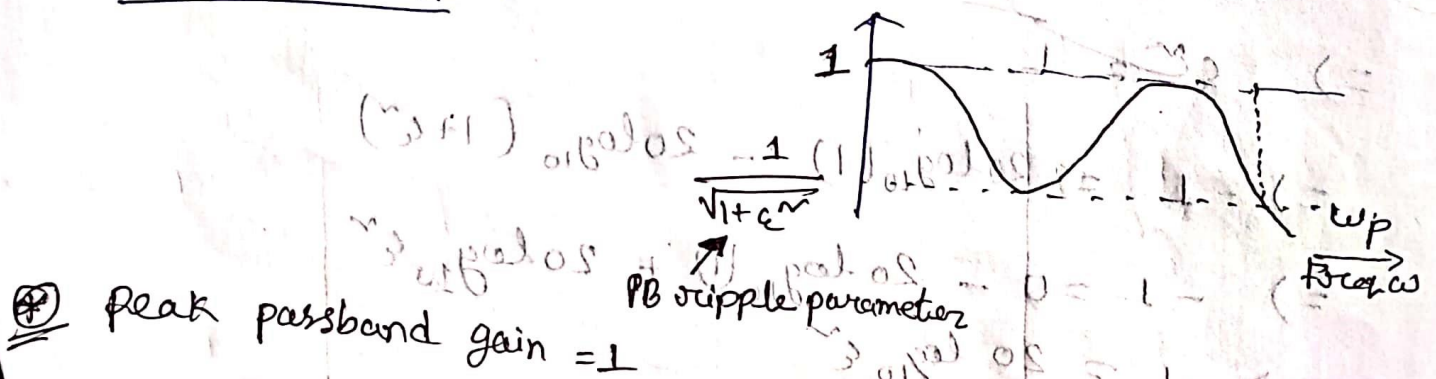 1
1
√1+ε²
ωp
Freq. ω
PB ripple parameter
⊛ Peak passband gain = 1